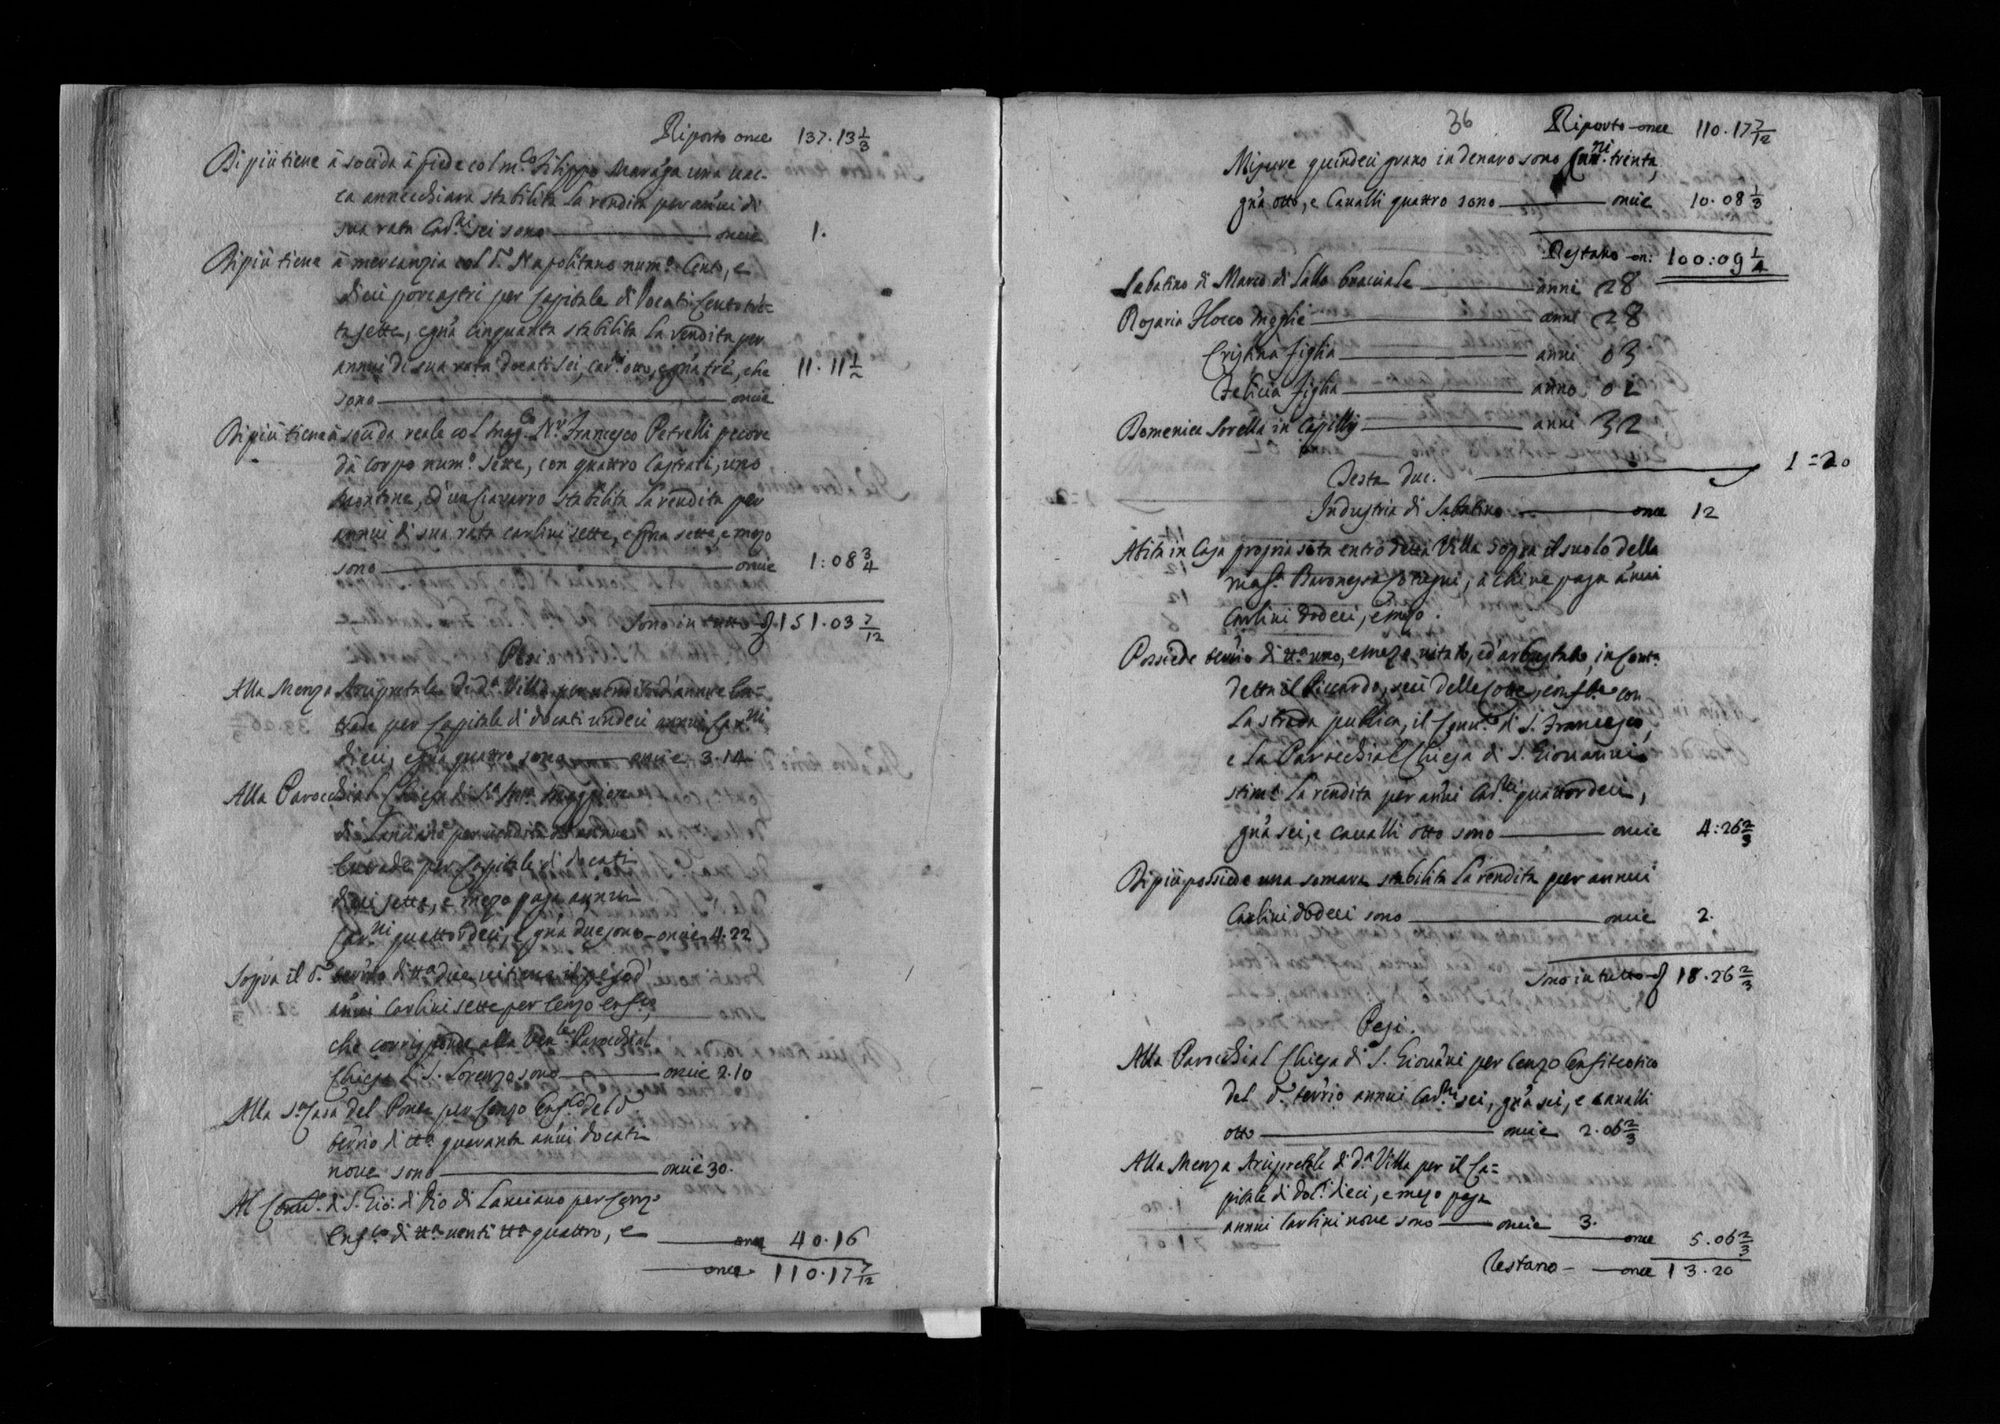 Riporto once 137.13 1/3
Di più tiene à soccida à fide col m.co Filippo una vac-
ca annecchiara stabilita la rendita per annui di
sua rata Car.ni sei sono once 1.
Di più tiene à mercanzia col d.o Napolitano num.o Cento, e
dieci porcastri per Capitale di Docati Cento tren-
tasette, e gña cinquanta stabilita la rendita per
annui di sua rata docati sei, car.i otto, e gña trè, che 11.11 1/2
sono once
Di più tiene à soccida reale col mag.co N.r Francesco Petrelli pecore
dà corpo num.o sette, con quattro Castrati, uno
montone, ed un Ciavarro stabilita la rendita per
annui di sua rata carlini sette, e gña sette, e mezo
sono once 1:08 3/4
sono in tutto 151.03 7/12
Pesi
Alla Menza Arcipretale di d.a Villa per annue En-
trade per Capitale di docati undeci annui Car.ni
dieci, e gña quattro sono once 3.14
Alla Parocchial Chiesa di S.a M.a Maggiore
di Lanciano per annue
Entrade per Capitale di docati
dieci sette, e mezo paga annui
Car.ni quattordeci, e gña due sono once 4.22
Sopra il d.o terr.io di tt.a due vi tiene il peso d'
añui Carlini sette per Cenzo Enf.co,
che corrisponde alla Ven.le Parochial
Chiesa di S. Lorenzo sono once 2.10
Alla S. Casa del Ponte per Cenzo Enf.co del d.o
terr.io di tt.a quaranta añui docati
nove sono once 30.
Al Conv.to di S. Gio: di Dio di Lanciano per Cenzo
Enf.co di tt.a venti tt.a quattro, e once 40.16
once 110.17 7/12
36
Riporto once 110.17 7/12
Misure quindeci grano in denaro sono Car.ni trenta,
gña otto, e Cavalli quattro sono oncie 10.08 1/3
Restano on: 100:09 1/4
Sabatino di Marco di Lallo bracciale anni 28
Rosaria Flocco moglie anni 28
Cristina figlia anni 03
Felicia figlia anno 02
Domenica Sorella in Capillis anni 32
Testa duc. 1=20
Industria di Sabatino once 12
Abita in Casa propria sita entro detta Villa sopra il suolo della
mag.ca Baronessa, à chi ne paga añui
Carlini dodeci, e mezo.
Possiede terr.io di tt.a uno, e mezo vitato, ed arbustato, in Cont.a
detta il Riccardo, seu delle Cotte, conf.te con
la strada publica, il Conv.to di S. Francesco,
e la Parocchial Chiesa di S. Giovanni
stim.a la rendita per añui Car.ni quattordeci,
gña sei, e cavalli otto sono oncie 4:26 2/3
Di più possiede una somara stabilita la rendita per annui
Carlini dodeci sono oncie 2.
sono in tutto 18.26 2/3
Pesi.
Alla Parocchial Chiesa di S. Giovañi per Cenzo Enfiteotico
del d.o terr.io annui Car.ni sei, gña sei, e cavalli
otto oncie 2.06 2/3
Alla Menza Arcipretale di d.a Villa per il Ca-
pitale di doc.i dieci, e mezo paga
annui Carlini nove sono oncie 3.
once 5.06 2/3
Restano once 13.20